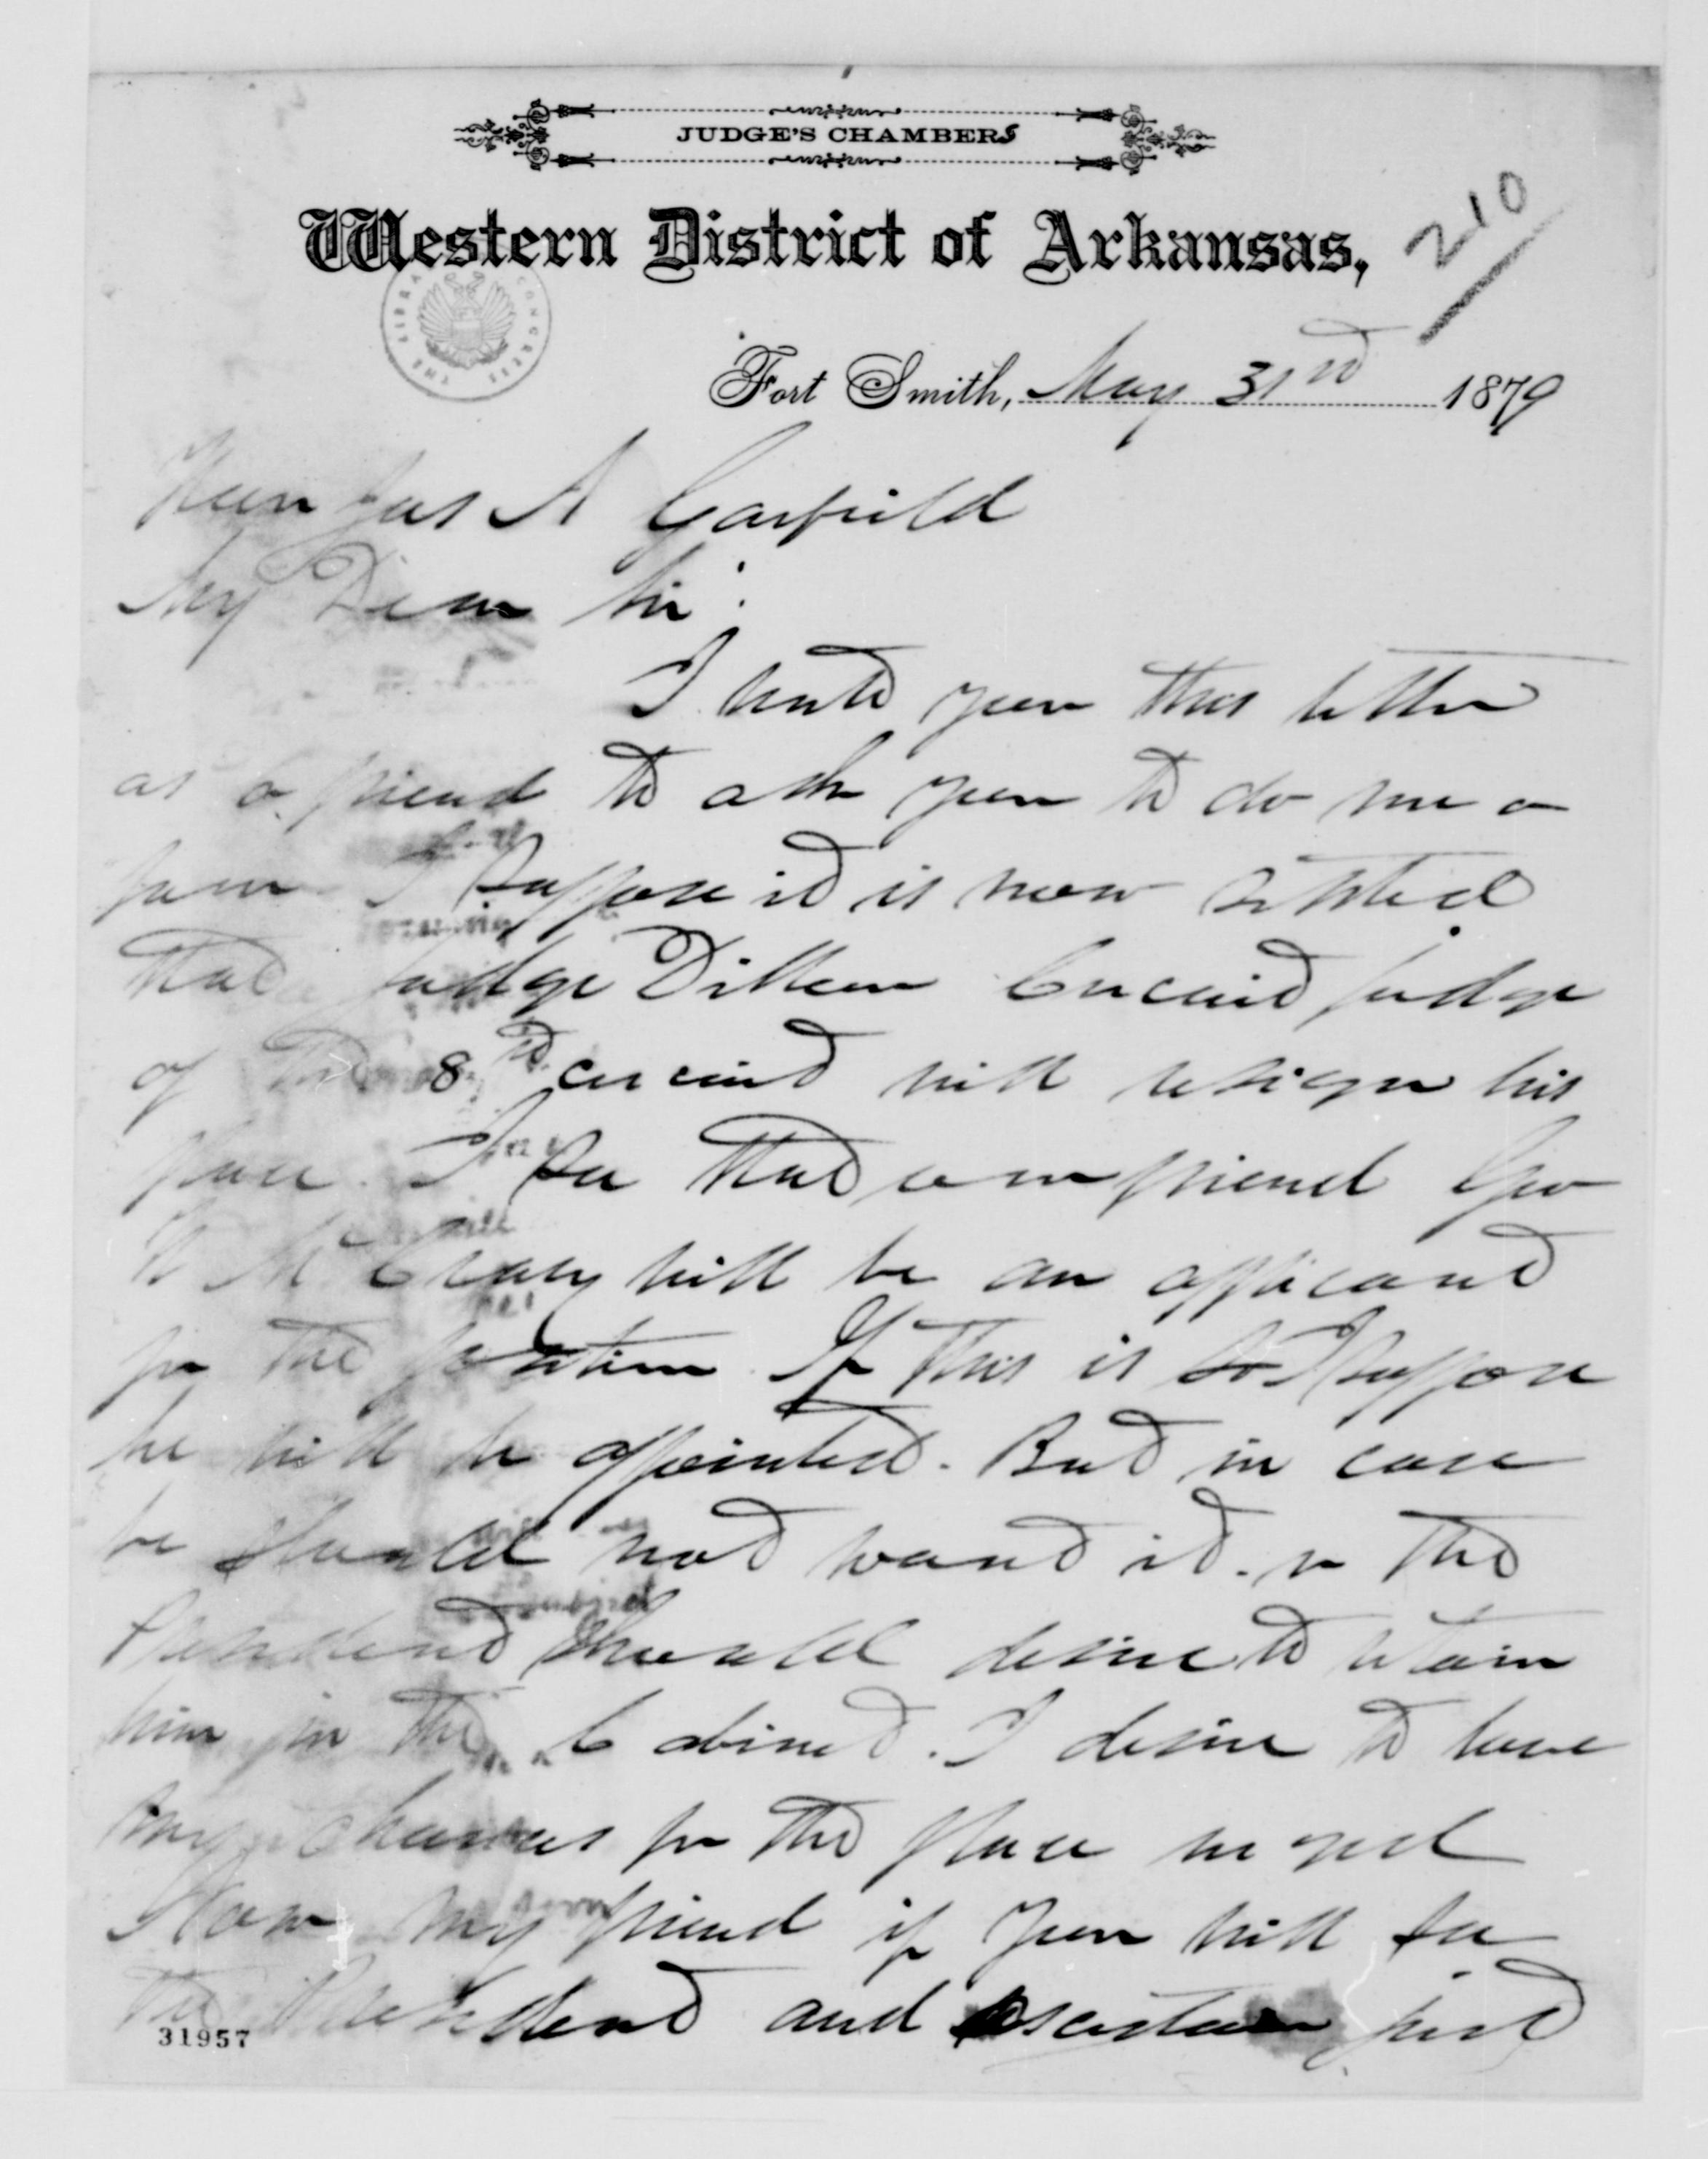 JUDGE'S CHAMBERS
Western District of Arkansas,
210
THE LIBRARY CONGRESS
Fort Smith, May 31nd 1879
Hon Jas A Garfield
My Dear Sir:
I write you this letter
as a friend to ask you to do me a
favor. I suppose it is now settled
that Judge Dillon Circuit Judge
of the 8th circuit will resign his
place. I see that our friend Geo
W McCrary will be an applicant
for the position. If this is so I suppose
he will be appointed. But in case
he should not want it. or the
President should desire to retain
him in the Cabinet. I desire to have
my chances for the place urged
Now my friend if you will see
the President and ascertain just
31957